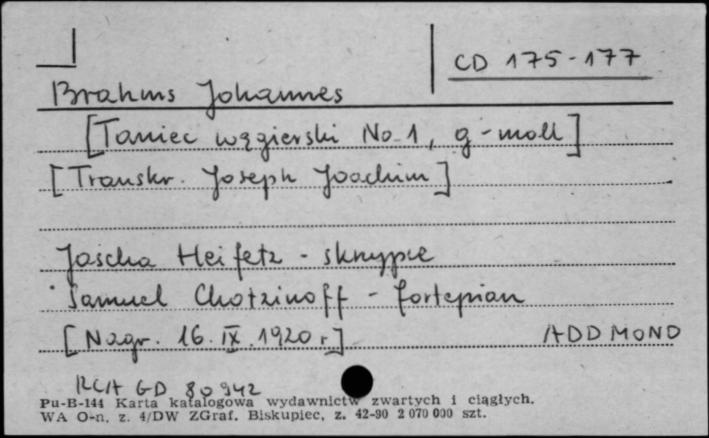 CD 175-177
Brahms Johannes
[Taniec węgierski No 1, g-moll]
[Transkr. Joseph Joachim]
Jascha Heifetz - skrzypce
Samuel Chotzinoff - fortepian
[Nagr. 16. IX. 1920 r.]
ADD MONO
RCA GD 80942
Pu-B-144 Karta katalogowa wydawnictw zwartych i ciągłych.
WA O-n, z. 4/DW ZGraf. Biskupiec, z. 42-90 2 070 000 szt.